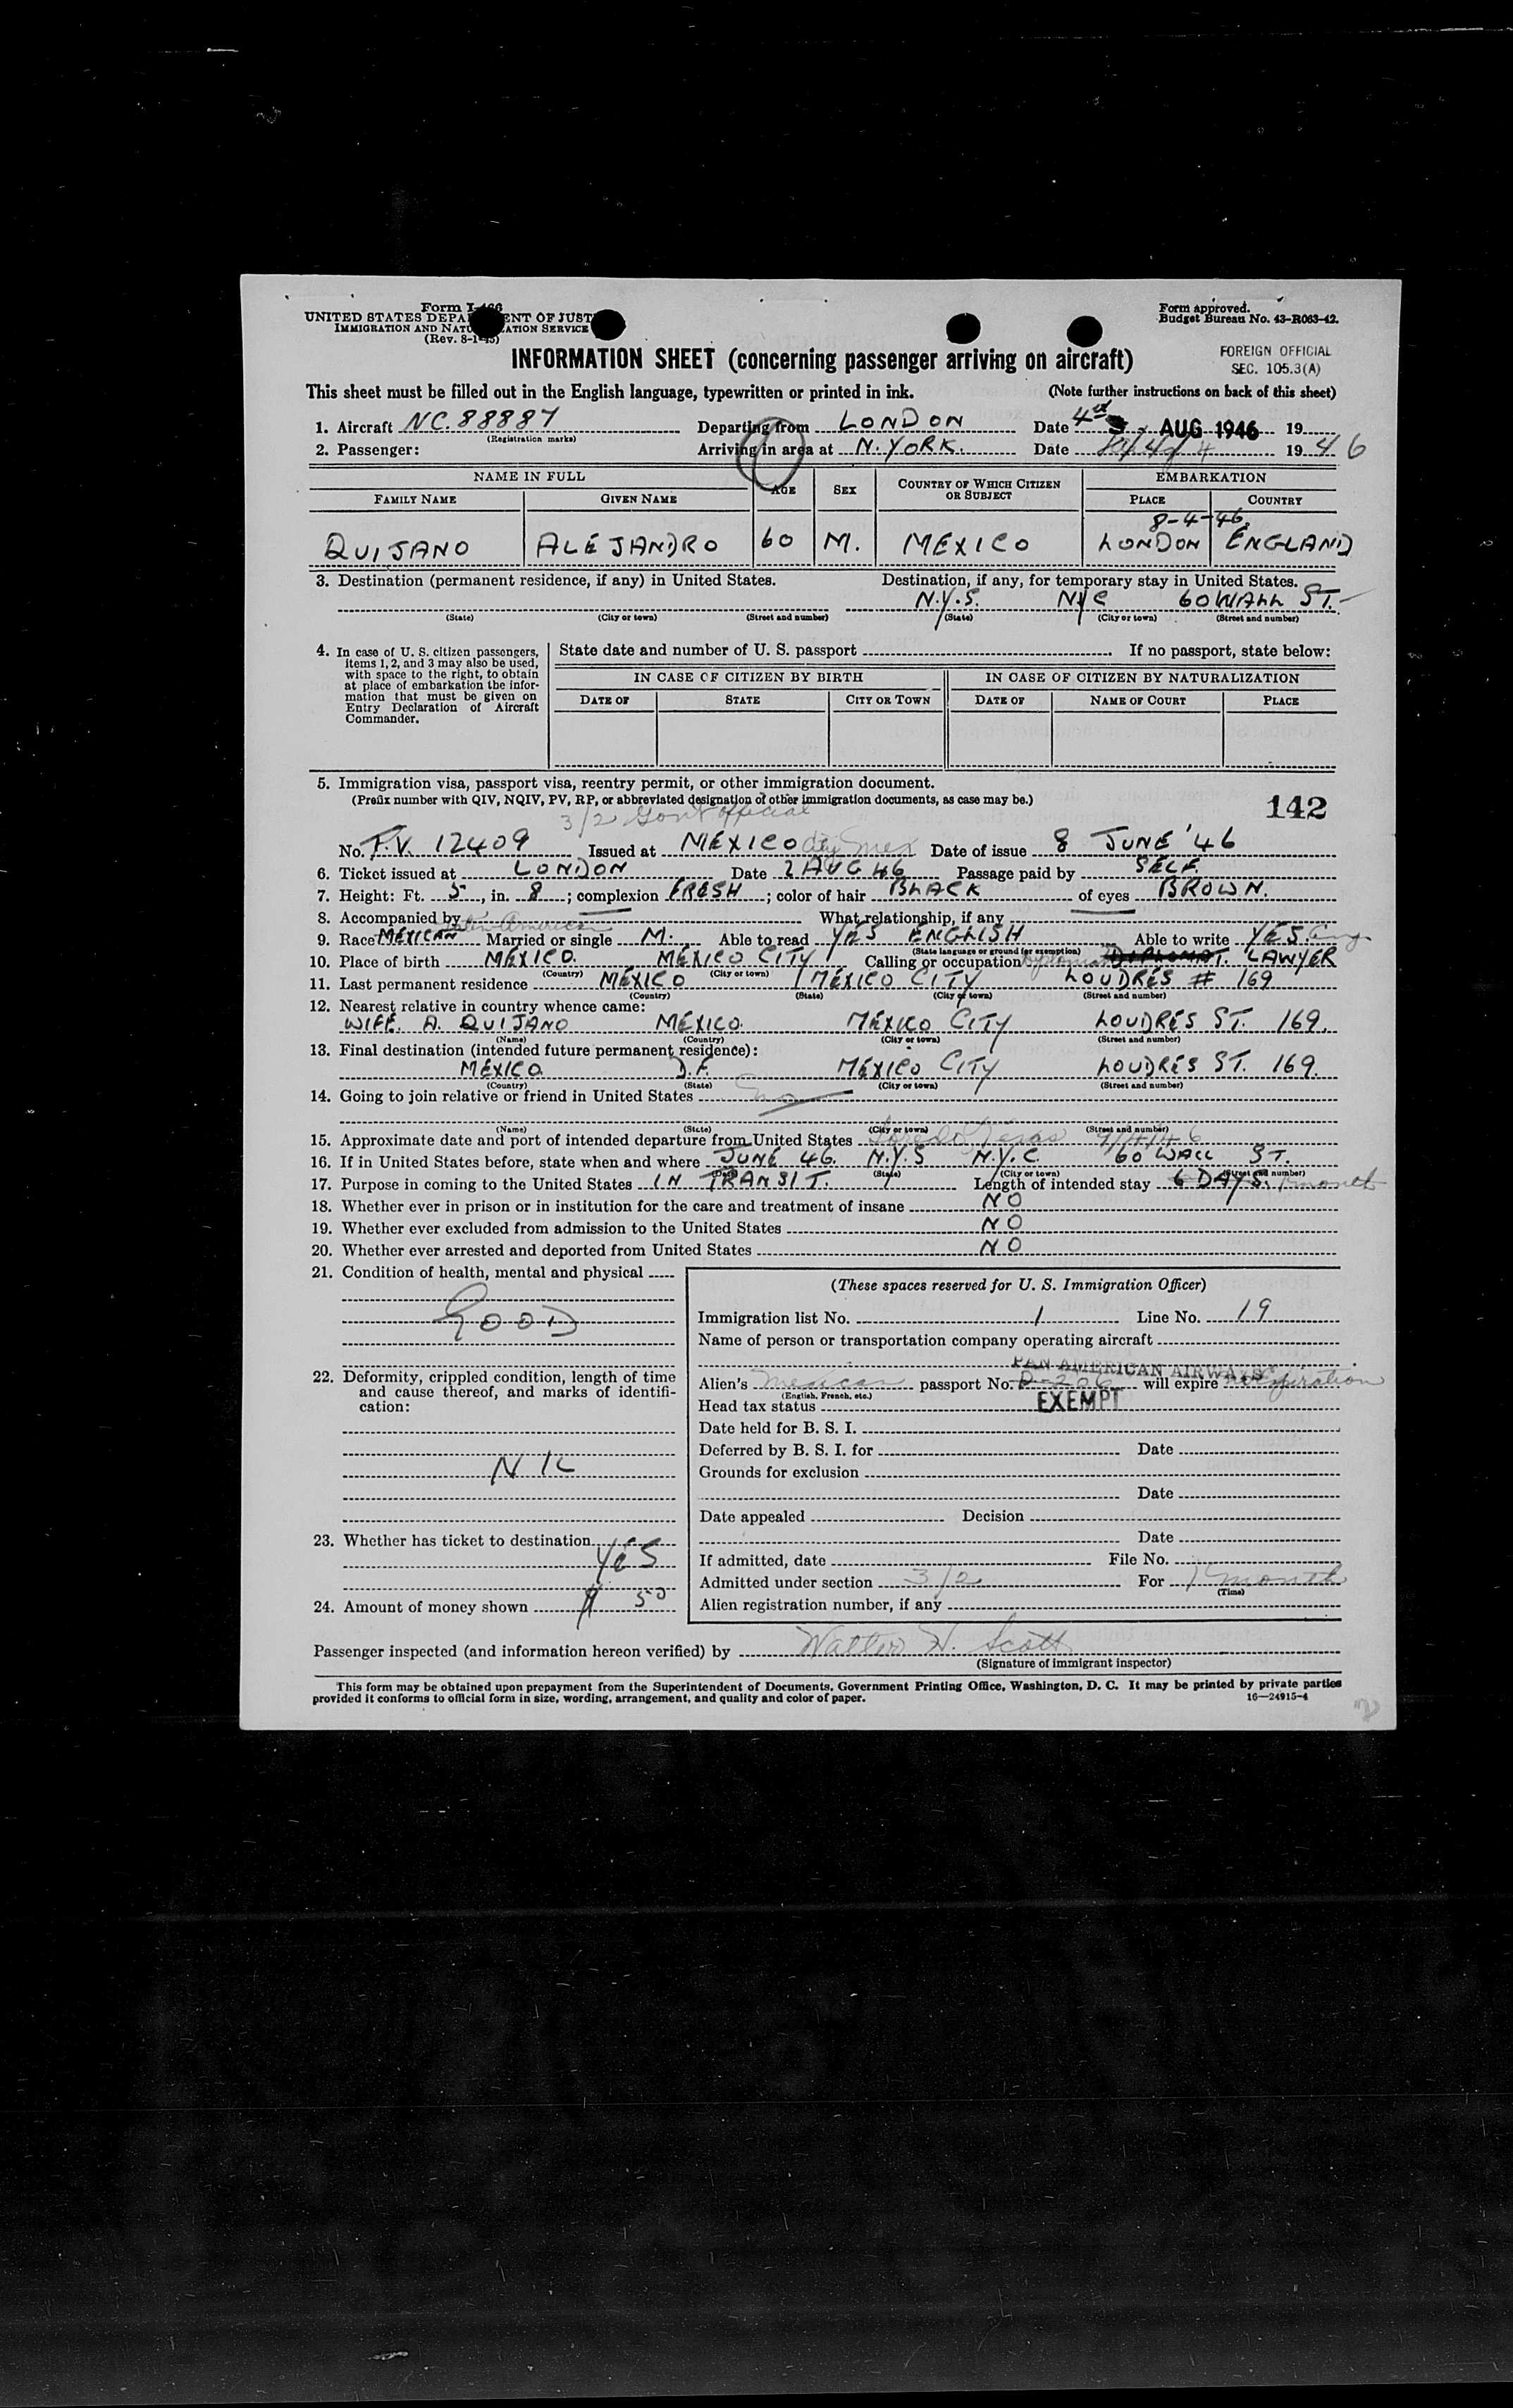 Form I-466
UNITED STATES DEPARTMENT OF JUSTICE
IMMIGRATION AND NATURALIZATION SERVICE
(Rev. 8-1-45)
Form approved.
Budget Bureau No. 43-R063-42.
INFORMATION SHEET (concerning passenger arriving on aircraft)
FOREIGN OFFICIAL
SEC. 105.3(A)
This sheet must be filled out in the English language, typewritten or printed in ink. (Note further instructions on back of this sheet)
1. Aircraft NC. 88887 Departing from LONDON Date 4th AUG 1946 19
(Registration marks)
2. Passenger: Arriving in area at N. YORK. Date 1946
NAME IN FULL AGE SEX COUNTRY OF WHICH CITIZEN OR SUBJECT EMBARKATION
FAMILY NAME GIVEN NAME PLACE COUNTRY
8-4-46
QUIJANO ALEJANDRO 60 M. MEXICO LONDON ENGLAND
3. Destination (permanent residence, if any) in United States. Destination, if any, for temporary stay in United States.
N.Y.S. NYC 60 WALL ST.
(State) (City or town) (Street and number) (State) (City or town) (Street and number)
4. In case of U. S. citizen passengers, items 1, 2, and 3 may also be used, with space to the right, to obtain at place of embarkation the information that must be given on Entry Declaration of Aircraft Commander.
State date and number of U. S. passport If no passport, state below:
IN CASE OF CITIZEN BY BIRTH IN CASE OF CITIZEN BY NATURALIZATION
DATE OF STATE CITY OR TOWN DATE OF NAME OF COURT PLACE
5. Immigration visa, passport visa, reentry permit, or other immigration document.
(Prefix number with QIV, NQIV, PV, RP, or abbreviated designation of other immigration documents, as case may be.)
142
3/2 Govt official
No. P.V. 12409 Issued at MEXICO City Mex Date of issue 8 JUNE '46
6. Ticket issued at LONDON Date 2 AUG 46 Passage paid by SELF.
7. Height: Ft. 5, in. 8; complexion FRESH; color of hair BLACK of eyes BROWN.
8. Accompanied by What relationship, if any
Latin American
9. Race MEXICAN Married or single M. Able to read YES ENGLISH Able to write YES. Eng
(State language or ground for exemption)
10. Place of birth MEXICO. MEXICO CITY Calling or occupation DIPLOMAT. LAWYER
(Country) (City or town)
11. Last permanent residence MEXICO MEXICO CITY LOUDRES # 169
(Country) (State) (City or town) (Street and number)
12. Nearest relative in country whence came:
WIFE. A. QUIJANO MEXICO. MEXICO CITY LOUDRES ST. 169.
(Name) (Country) (City or town) (Street and number)
13. Final destination (intended future permanent residence):
MEXICO D.F. MEXICO CITY LOUDRES ST. 169.
(Country) (State) (City or town) (Street and number)
14. Going to join relative or friend in United States no
(Name) (State) (City or town) (Street and number)
15. Approximate date and port of intended departure from United States Laredo Texas 9/4/46
16. If in United States before, state when and where JUNE 46. N.Y.S N.Y.C. 60 WALL ST.
(Date) (State) (City or town) (Street and number)
17. Purpose in coming to the United States IN TRANSIT. Length of intended stay 6 DAYS. 1 month
18. Whether ever in prison or in institution for the care and treatment of insane NO
19. Whether ever excluded from admission to the United States NO
20. Whether ever arrested and deported from United States NO
21. Condition of health, mental and physical
GOOD
22. Deformity, crippled condition, length of time and cause thereof, and marks of identification:
NIL
23. Whether has ticket to destination YES
24. Amount of money shown $ 50
(These spaces reserved for U. S. Immigration Officer)
Immigration list No. 1 Line No. 19
Name of person or transportation company operating aircraft
PAN AMERICAN AIRWAYS
Alien's Mexican passport No. D-206 will expire no expiration
(English, French, etc.)
Head tax status EXEMPT
Date held for B. S. I.
Deferred by B. S. I. for Date
Grounds for exclusion
Date
Date appealed Decision
Date
If admitted, date File No.
Admitted under section 3/2 For 1 month
(Time)
Alien registration number, if any
Passenger inspected (and information hereon verified) by Walter H. Scott
(Signature of immigrant inspector)
This form may be obtained upon prepayment from the Superintendent of Documents, Government Printing Office, Washington, D. C. It may be printed by private parties
provided it conforms to official form in size, wording, arrangement, and quality and color of paper. 16—24915-4